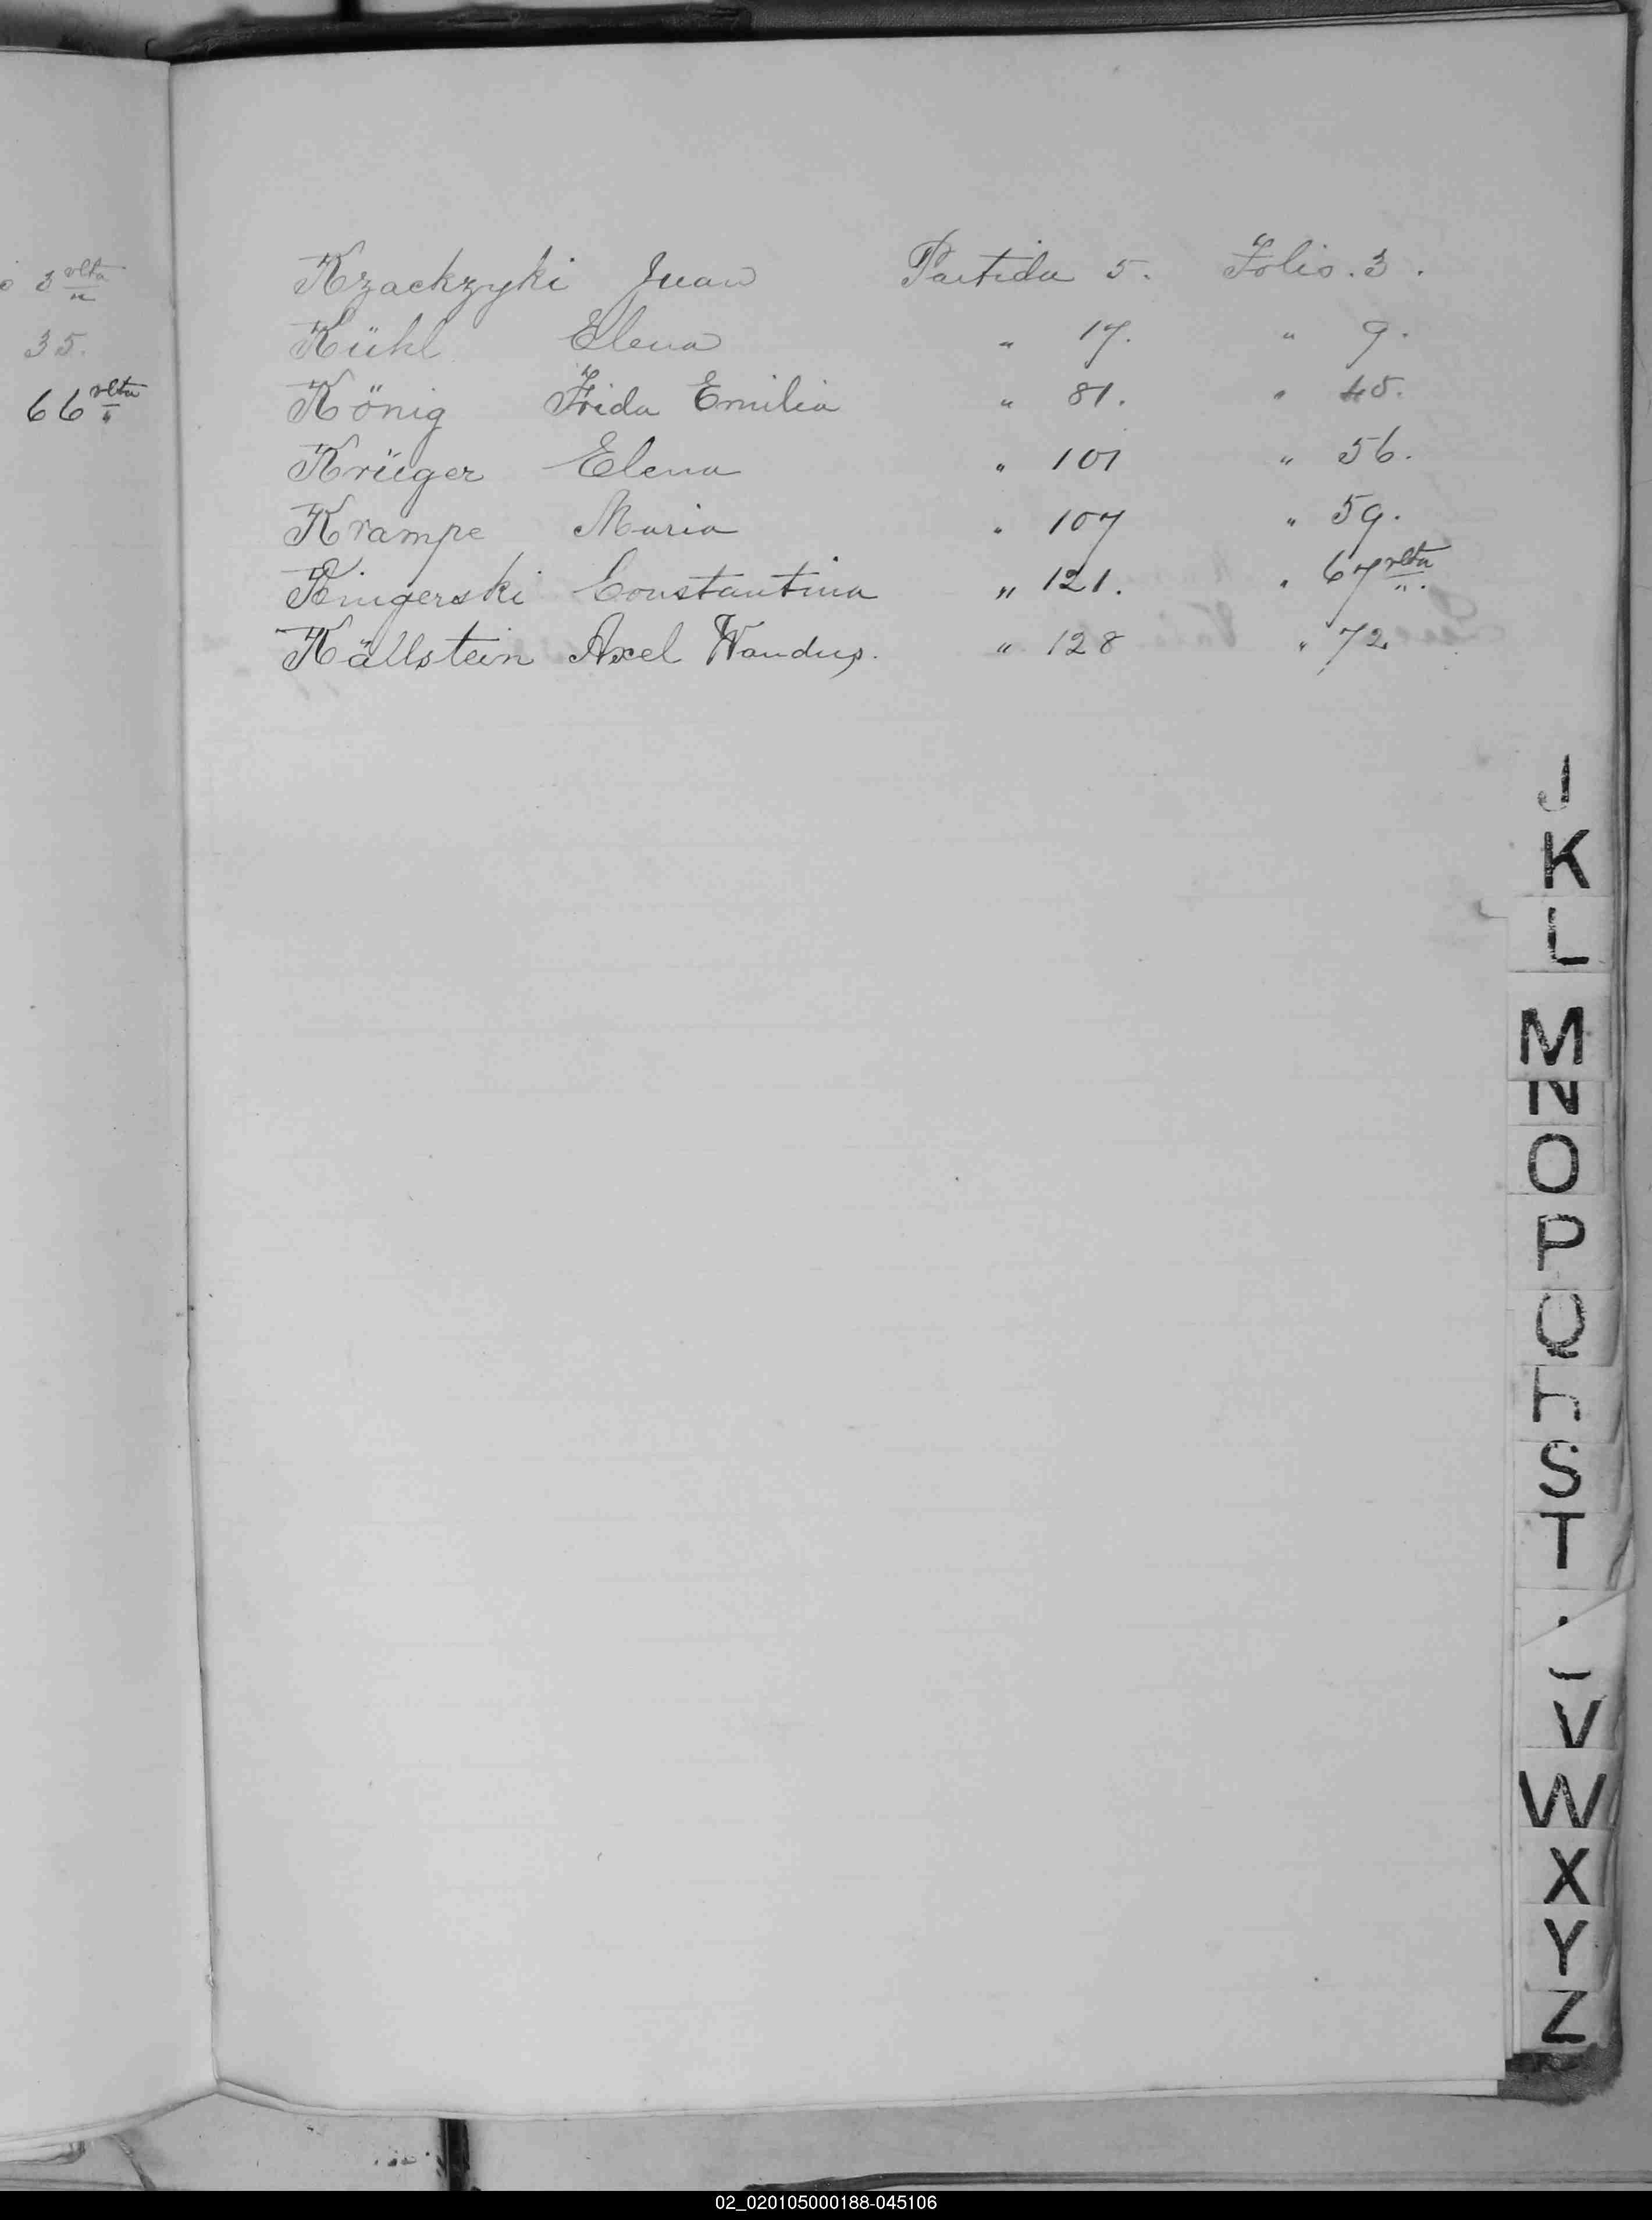 3 vlta
35.
66 vlta
Krzackzyki Juan Partida 5. Folio. 3.
Kühl Elena " 17. " 9.
König Frida Emilia " 81. " 45.
Krüeger Elena " 101 " 56.
Krampe Maria " 107 " 59.
Kingerski Constantina " 121. " 67 vlta
Källstein Axel Wandus. " 128 " 72
J
K
L
M
N
O
P
Q
S
T
V
W
X
Y
Z
02_020105000188-045106